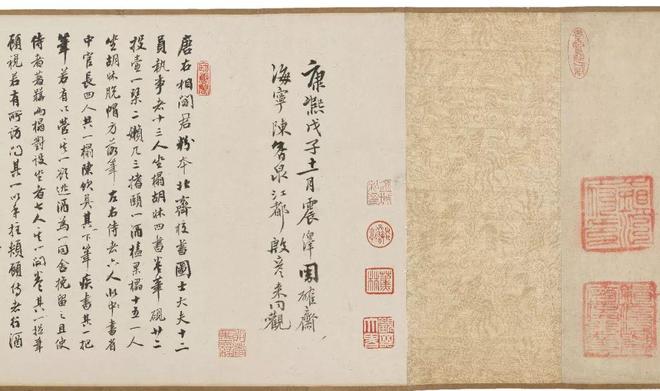 康熙戊子十一月震澤周確齋
海寧陳香泉江都殷彥來同觀
唐右相閻君粉本北齊校書圖士大夫十二
員執事者十三人坐榻胡床四書卷筆硯廿二
投壺一琴二嬾几三搘頤一酒榼果榼十五一人
坐胡床脫帽方落筆左右侍者六人似中書省
中官長四人共一榻陳飲具其一下筆疾書其一把
筆若有以營其一欲逃酒為一同舍挽留之且使
侍者著鞾兩榻對設坐者七人其一開卷其一捉筆
顧視若有所訪問其一以手拄頰顧侍者行酒